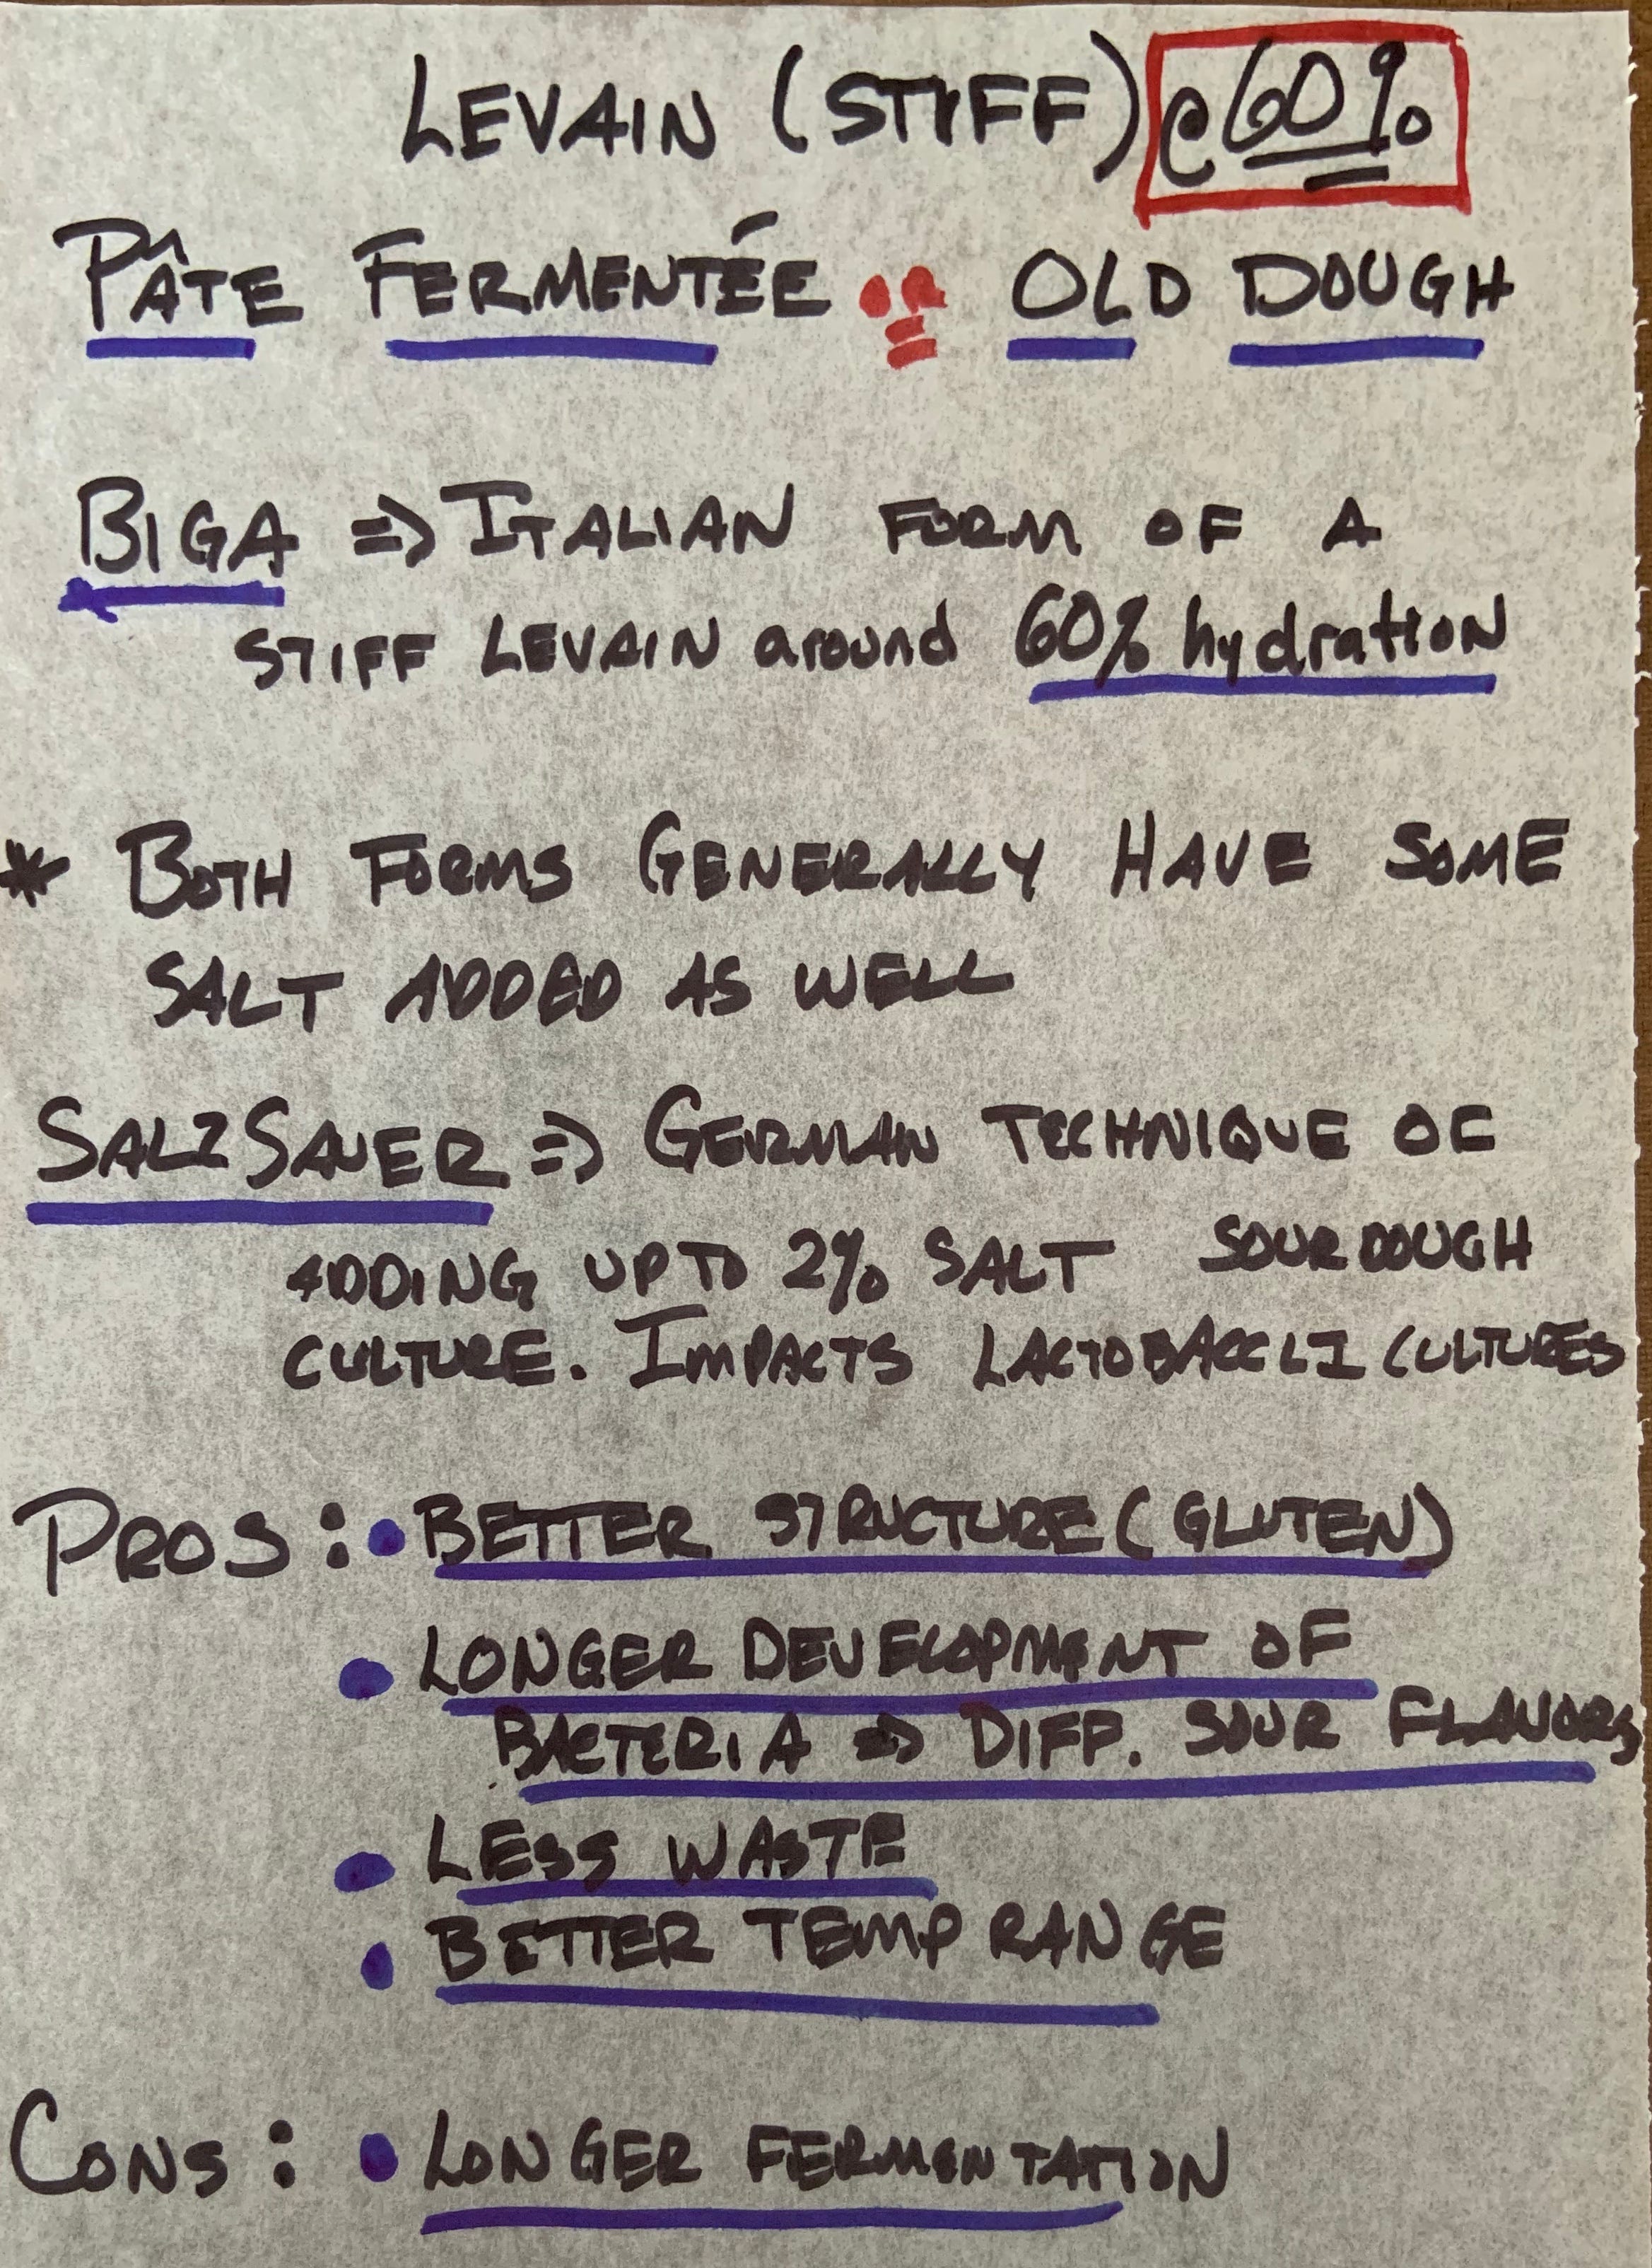 LEVAIN (STIFF) @ 60%
PÂTE FERMENTÉE OLD DOUGH
BIGA => ITALIAN FORM OF A
STIFF LEVAIN around 60% hydration
* BOTH FORMS GENERALLY HAVE SOME
SALT ADDED AS WELL
SALZSAUER => GERMAN TECHNIQUE OF
ADDING UP TO 2% SALT SOURDOUGH
CULTURE. IMPACTS LACTOBACCLI CULTURES
PROS: • BETTER STRUCTURE (GLUTEN)
• LONGER DEVELOPMENT OF
BACTERIA => DIFF. SOUR FLAVORS
• LESS WASTE
• BETTER TEMP RANGE
CONS: • LONGER FERMENTATION